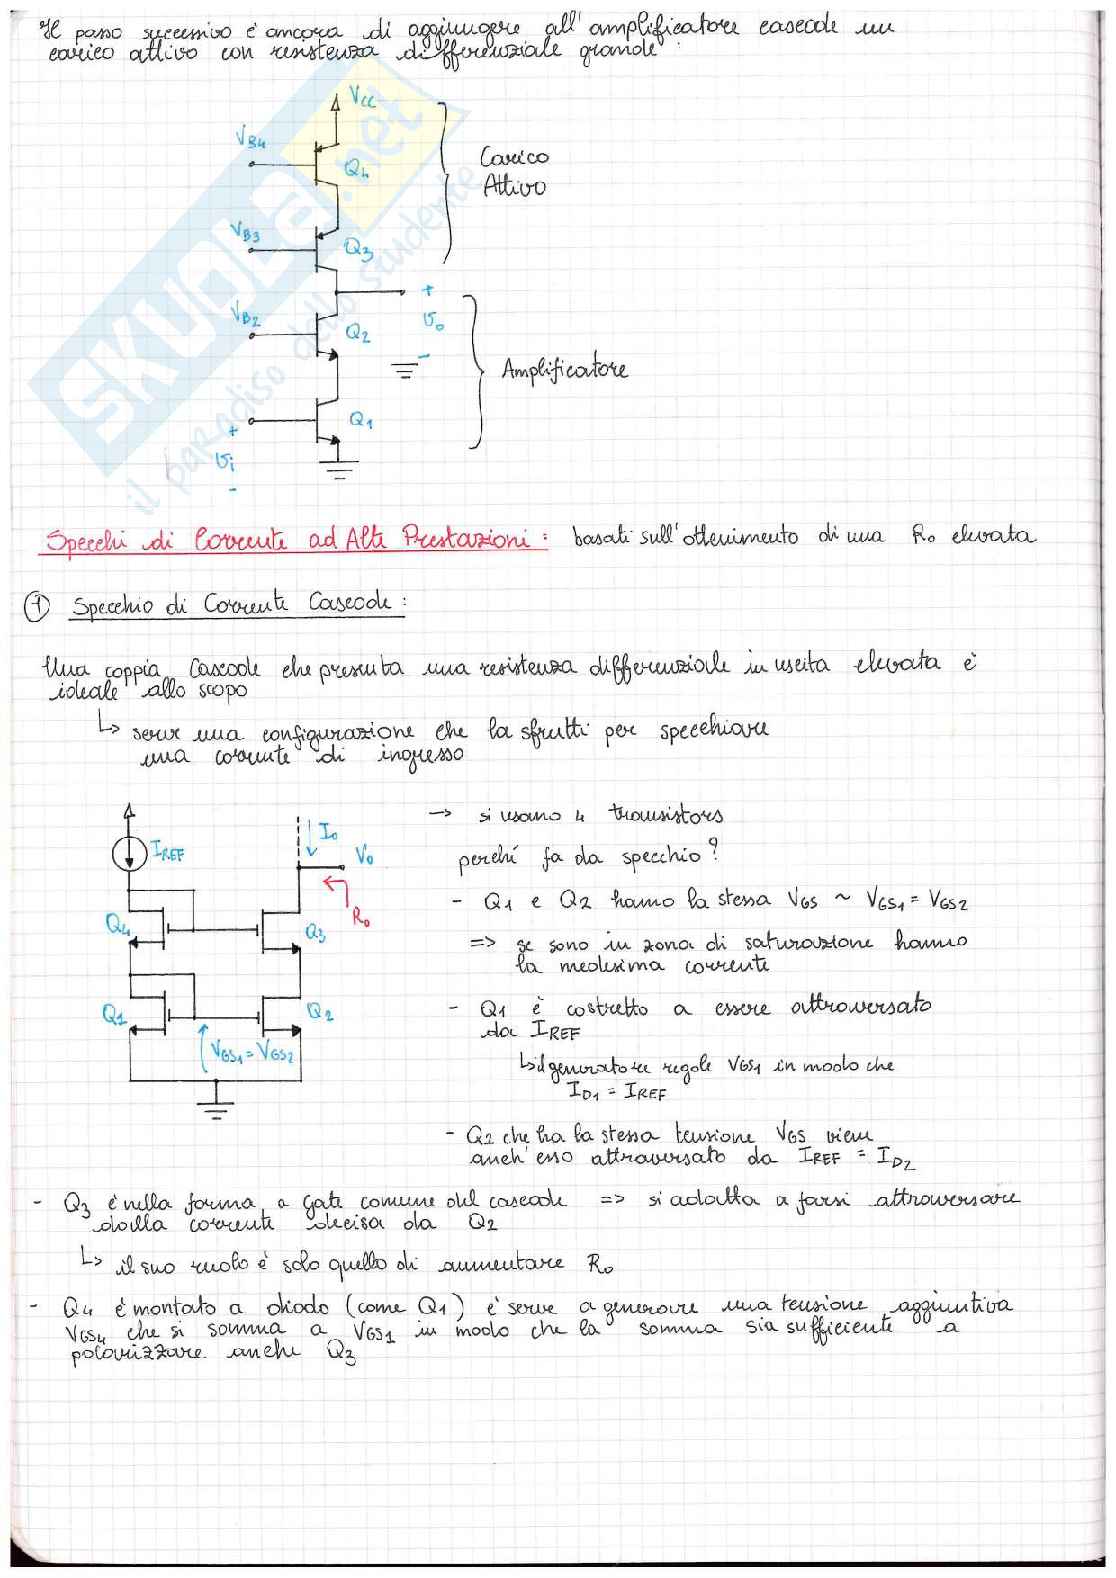 Il passo successivo è ancora di aggiungere all'amplificatore cascode un
carico attivo con resistenza differenziale grande:
VCC
VB4
Q4
Carico
Attivo
VB3
Q3
+
VB2
Q2
vo
-
Amplificatore
Q1
+
vi
-
SKUOLA.net
il paradiso dello studente
Specchi di Corrente ad Alte Prestazioni: basati sull'ottenimento di una Ro elevata
1 Specchio di Corrente Cascode:
Una coppia Cascode che presenta una resistenza differenziale in uscita elevata è
ideale allo scopo
↳ serve una configurazione che la sfrutti per specchiare
una corrente di ingresso
IREF
Io
Vo
Ro
Q4
Q3
Q1
Q2
VGS1 = VGS2
→ si usano 4 transistors
perché fa da specchio?
- Q1 e Q2 hanno la stessa VGS ~ VGS1 = VGS2
=> se sono in zona di saturazione hanno
la medesima corrente
- Q1 è costretto a essere attraversato
da IREF
↳ il generatore regola VGS1 in modo che
ID1 = IREF
- Q2 che ha la stessa tensione VGS viene
anch'esso attraversato da IREF = ID2
- Q3 è nella forma a gate comune del cascode => si adatta a farsi attraversare
dalla corrente decisa da Q2
↳ il suo ruolo è solo quello di aumentare Ro
- Q4 è montato a diodo (come Q1) e serve a generare una tensione aggiuntiva
VGS4 che si somma a VGS1 in modo che la somma sia sufficiente a
polarizzare anche Q3